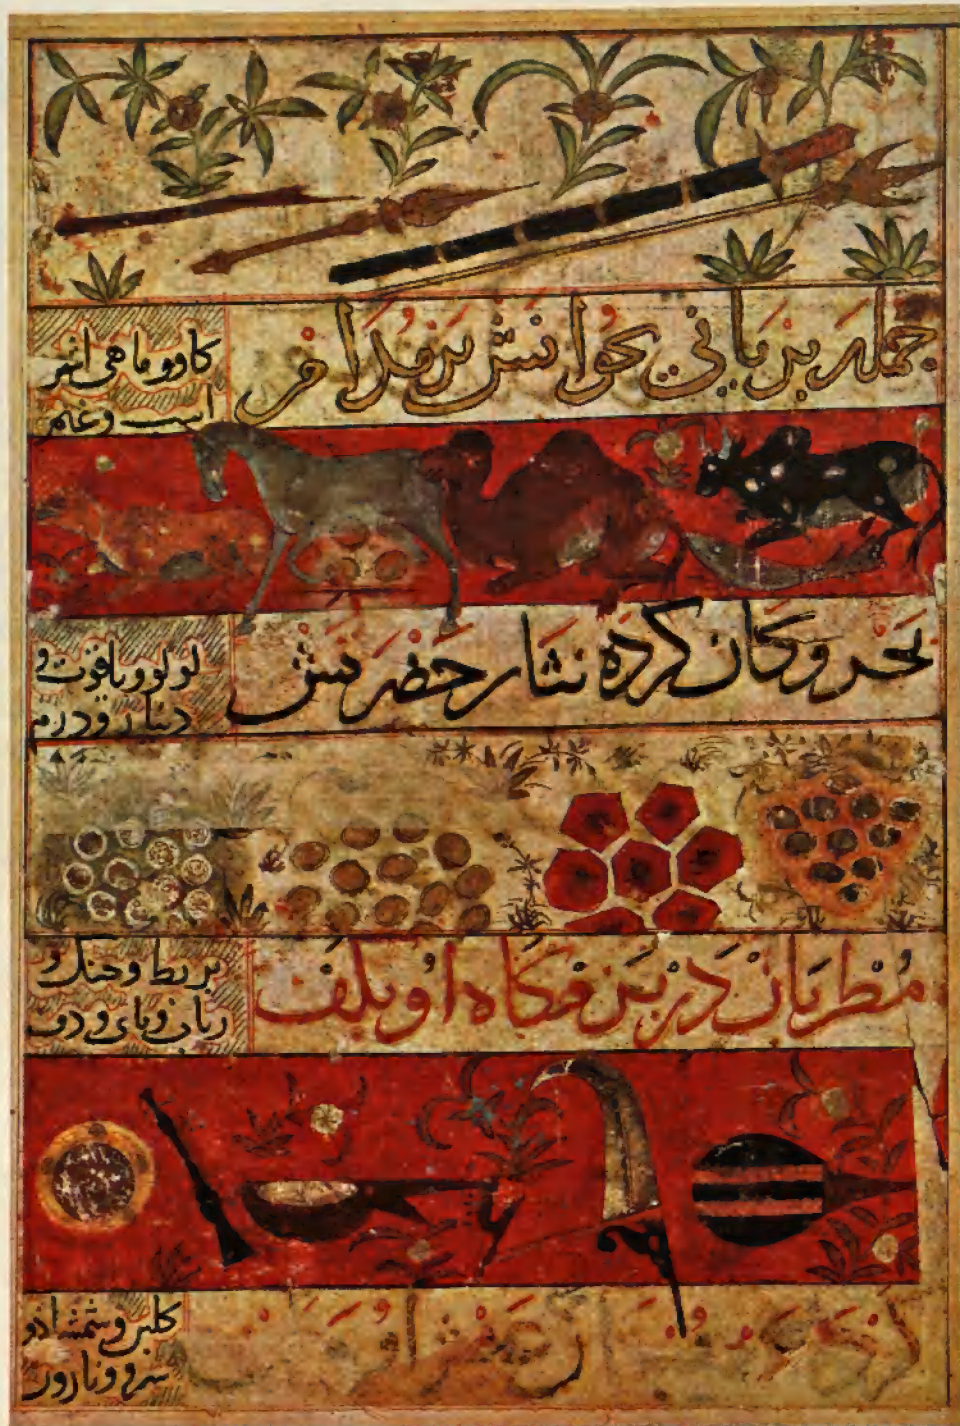 جمله بریانی بخوانش بر
کاو و ماهی اشتر
اسب و غنم
بحر و کان کرده نثار حضرتش
لولو و یاقوت و
دینار و درم
مطربان در بزمگاه او بکف
بربط و چنک و
رباب و نای و دف
کلبن و شمشاد و
سرو و نارون